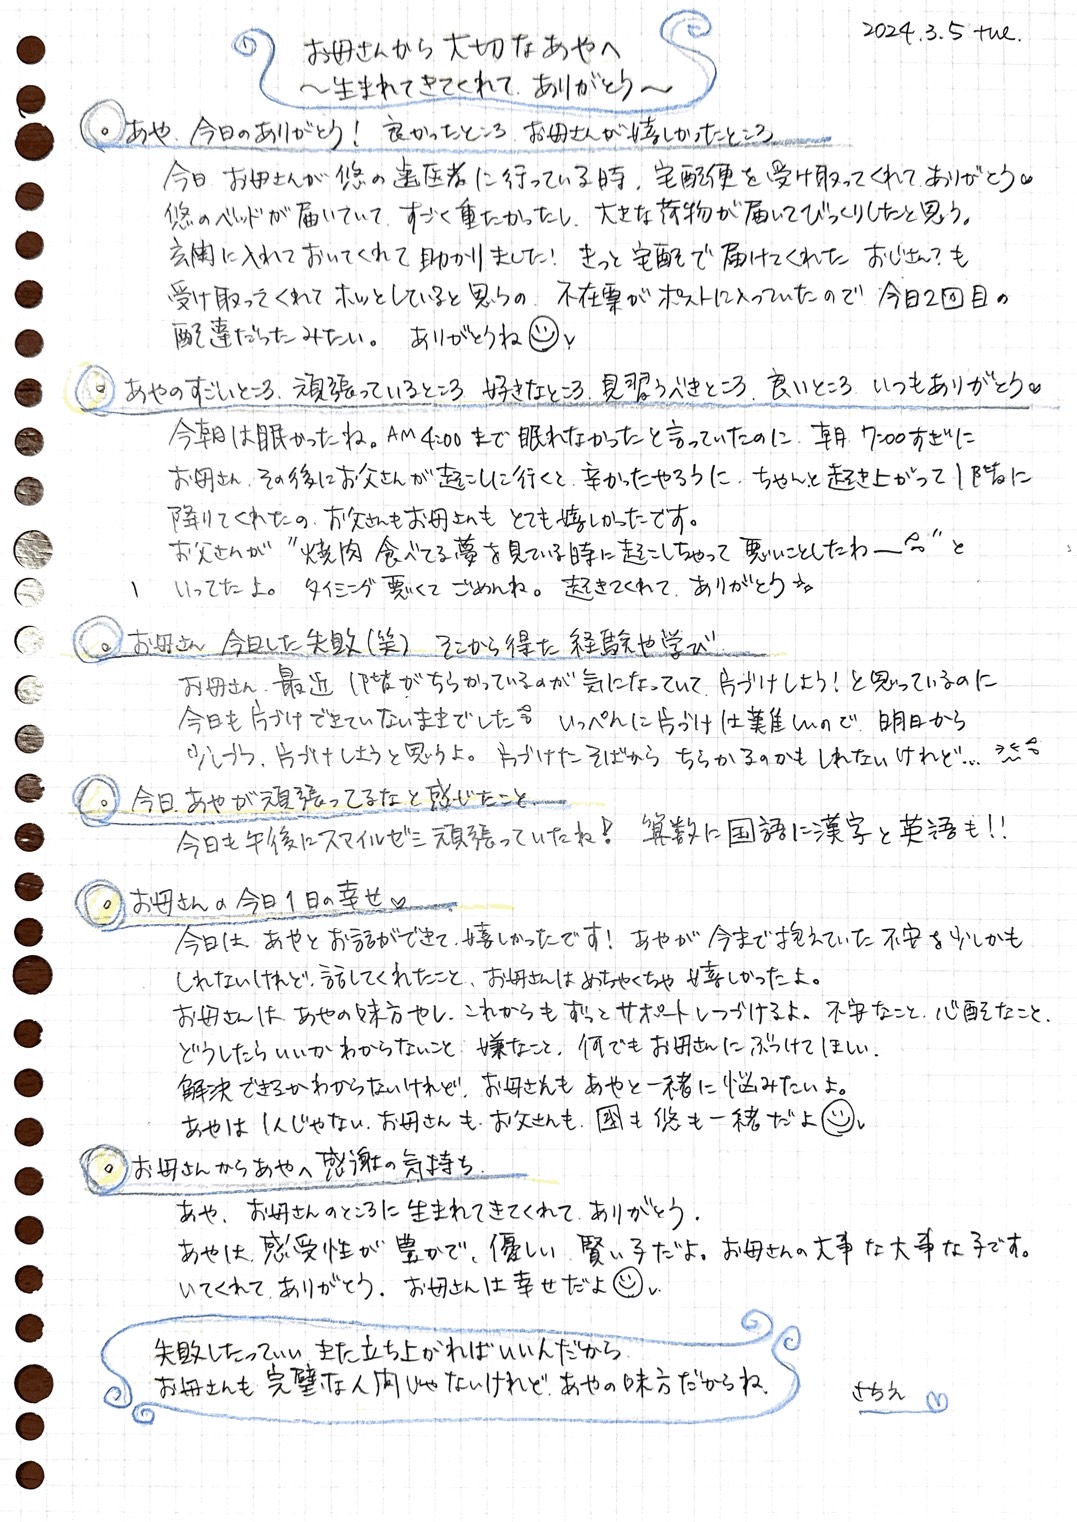 2024.3.5 tue.
お母さんから 大切なあやへ
〜生まれてきてくれて、ありがとう〜
あや、今日のありがとう! 良かったところ、お母さんが嬉しかったところ
今日、お母さんが悠の歯医者に行っている時、宅配便を受け取ってくれて、ありがとう♡
悠のベッドが届いていて、すごく重たかったし、大きな荷物が届いてびっくりしたと思う。
玄関に入れておいてくれて助かりました! きっと宅配で届けてくれたおじさん?も
受け取ってくれてホッとしていると思うの、不在票がポストに入っていたので、今日2回目の
配達だったみたい。 ありがとうね
あやのすごいところ、頑張っているところ、好きなところ、見習うべきところ、良いところ、いつもありがとう♡
今朝は眠かったね。AM4:00まで眠れなかったと言っていたのに、朝7:00すぎに
お母さん、その後にお父さんが起こしに行くと、辛かったやろうに、ちゃんと起き上がって1階に
降りてくれたの、お父さんもお母さんも とても嬉しかったです。
お父さんが "焼肉食べてる夢を見ている時に起こしちゃって悪いことしたわー" と
いってたよ。 タイミング悪くてごめんね。起きてくれて、ありがとう
お母さん、今日した失敗(笑) そこから得た経験や学び
お母さん、最近1階がちらかっているのが気になっていて、片づけしよう!と思っているのに
今日も片づけできていないままでした いっぺんに片づけは難しいので、明日から
少しづつ、片づけしようと思うよ。片づけたそばからちらかるのかもしれないけれど...
今日、あやが頑張ってるなと感じたこと、
今日も午後にスマイルゼミ頑張っていたね! 算数に国語に漢字と英語も!!
お母さんの今日1日の幸せ♡
今日は、あやとお話ができて、嬉しかったです! あやが今まで抱えていた不安を少しかも
しれないけれど、話してくれたこと、お母さんはめちゃくちゃ嬉しかったよ。
お母さんは、あやの味方やし、これからもずっとサポートしつづけるよ。不安なこと、心配なこと、
どうしたらいいかわからないこと、嫌なこと、何でもお母さんにぶつけてほしい、
解決できるかわからないけれど、お母さんもあやと一緒に悩みたいよ。
あやは1人じゃない、お母さんも、お父さんも、圏も悠も一緒だよ
お母さんからあやへ感謝の気持ち、
あや、お母さんのところに生まれてきてくれて、ありがとう。
あやは、感受性が豊かで、優しい、賢い子だよ。お母さんの大事な大事な子です。
いてくれて、ありがとう。お母さんは幸せだよ
失敗したっていい、また立ち上がればいいんだから、
お母さんも完璧な人間じゃないけれど、あやの味方だからね、
さちえ♡